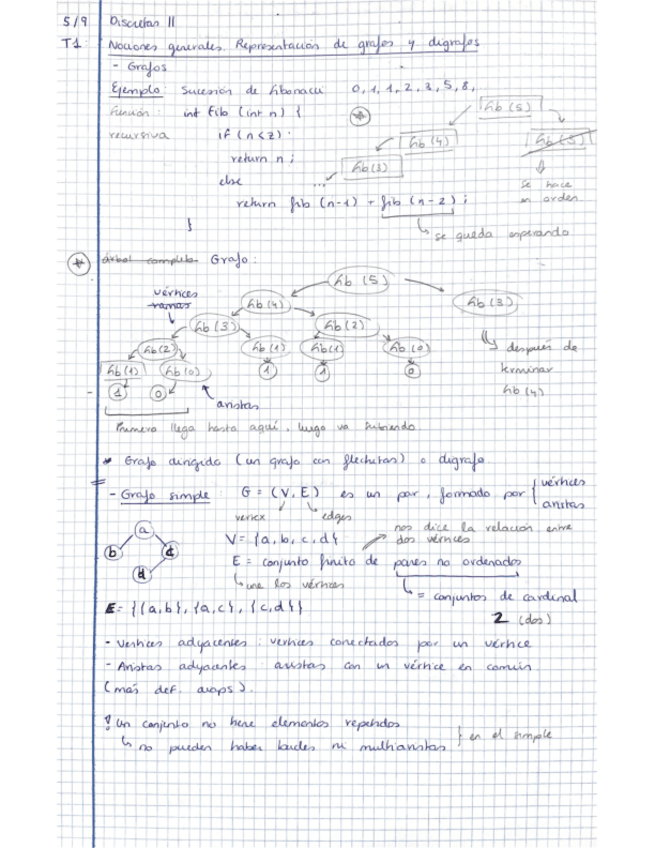 5/9 Discretas II
T1: Nociones generales. Representación de grafos y digrafos
- Grafos
Ejemplo: Sucesión de fibonacci 0, 1, 1, 2, 3, 5, 8,
Función: int fib (int n) {
recursiva if (n<2):
return n;
else
return fib (n-1) + fib (n-2);
}
se queda esperando
fib(5)
fib(4) fib(3)
fib(3)
...
se hace
en orden
árbol completo Grafo:
fib(5)
vértices
ramas
fib(4) fib(3)
fib(3) fib(2)
fib(2) fib(1) fib(1) fib(0)
fib(1) fib(0) 1 1 0
1 0
después de
terminar
fib(4)
aristas
Primero llega hasta aquí, luego va subiendo.
* Grafo dirigido (un grafo con flechitas) o digrafo.
- Grafo simple: G = (V, E) es un par, formado por { vértices
aristas
vertex edges
nos dice la relación entre
dos vértices
a
b c
d
V = {a, b, c, d}
E = conjunto finito de pares no ordenados
une los vértices
= conjuntos de cardinal
2 (dos)
E = {{a,b}, {a,c}, {c,d}}
- Vértices adyacentes: vértices conectados por un vértice
- Aristas adyacentes: aristas con un vértice en común
(más def. diaps).
! Un conjunto no tiene elementos repetidos
no pueden haber bucles ni multiaristas } en el simple